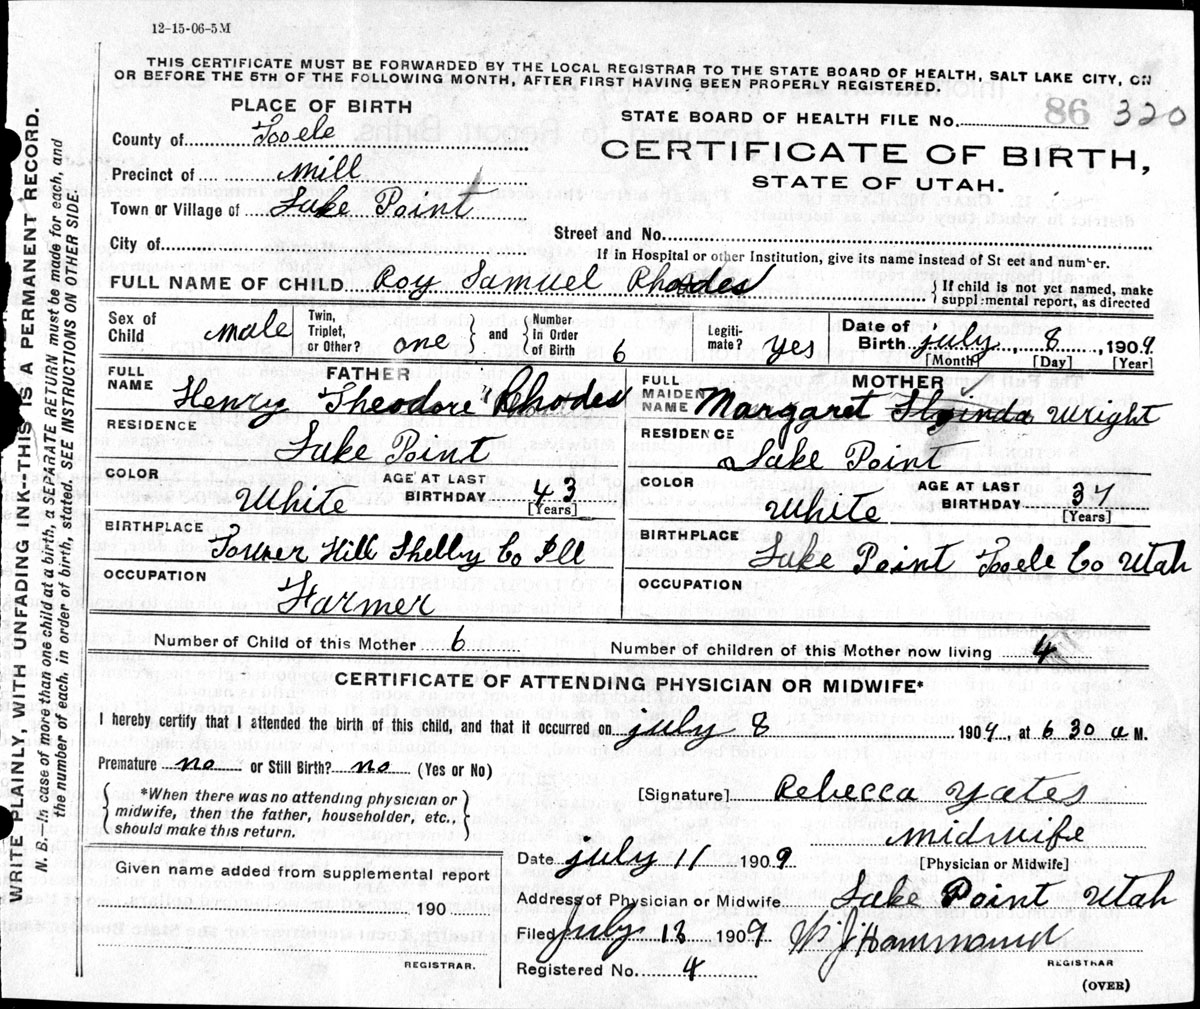 12-15-06-5M
THIS CERTIFICATE MUST BE FORWARDED BY THE LOCAL REGISTRAR TO THE STATE BOARD OF HEALTH, SALT LAKE CITY, ON
OR BEFORE THE 5TH OF THE FOLLOWING MONTH, AFTER FIRST HAVING BEEN PROPERLY REGISTERED.
PLACE OF BIRTH
STATE BOARD OF HEALTH FILE No. 86 320
County of Tooele
CERTIFICATE OF BIRTH,
Precinct of mill
STATE OF UTAH.
Town or Village of Lake Point
City of
Street and No.
If in Hospital or other Institution, give its name instead of St eet and number.
FULL NAME OF CHILD Roy Samuel Rhodes
{ If child is not yet named, make
supplemental report, as directed
Sex of Child male
Twin, Triplet, or Other? one
and
Number in Order of Birth 6
Legiti-mate? yes
Date of Birth July 8, 1909
[Month] [Day] [Year]
FATHER
FULL NAME Henry Theodore Rhodes
MOTHER
FULL MAIDEN NAME Margaret Wright
RESIDENCE Lake Point
RESIDENCE Lake Point
COLOR White
AGE AT LAST BIRTHDAY 43 [Years]
COLOR White
AGE AT LAST BIRTHDAY 37 [Years]
BIRTHPLACE Tower Hill Shelby Co Ill
BIRTHPLACE Lake Point Tooele Co Utah
OCCUPATION Farmer
OCCUPATION
Number of Child of this Mother 6
Number of children of this Mother now living 4
CERTIFICATE OF ATTENDING PHYSICIAN OR MIDWIFE*
I hereby certify that I attended the birth of this child, and that it occurred on July 8 1909, at 6 30 a M.
Premature no or Still Birth? no (Yes or No)
*When there was no attending physician or
midwife, then the father, householder, etc.,
should make this return.
[Signature] Rebecca Yates
midwife
[Physician or Midwife]
Given name added from supplemental report
190
REGISTRAR.
Date July 11 1909
Address of Physician or Midwife Lake Point Utah
Filed July 12 1909 W J Hammond
REGISTRAR
Registered No. 4
(OVER)
WRITE PLAINLY, WITH UNFADING INK--THIS IS A PERMANENT RECORD.
N. B. In case of more than one child at a birth, a SEPARATE RETURN must be made for each, and
the number of each, in order of birth, stated. SEE INSTRUCTIONS ON OTHER SIDE.